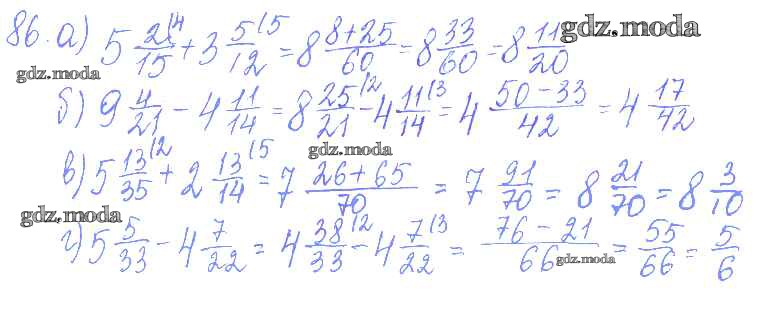 86. а) 5 2/15 |4 + 3 5/12 |5 = 8 8+25/60 = 8 33/60 = 8 11/20
gdz.moda
gdz.moda
б) 9 4/21 - 4 11/14 = 8 25/21 |2 - 4 11/14 |3 = 4 50-33/42 = 4 17/42
gdz.moda
в) 5 13/35 |2 + 2 13/14 |5 = 7 26+65/70 = 7 91/70 = 8 21/70 = 8 3/10
gdz.moda
г) 5 5/33 - 4 7/22 = 4 38/33 |2 - 4 7/22 |3 = 76-21/66 = 55/66 = 5/6
gdz.moda